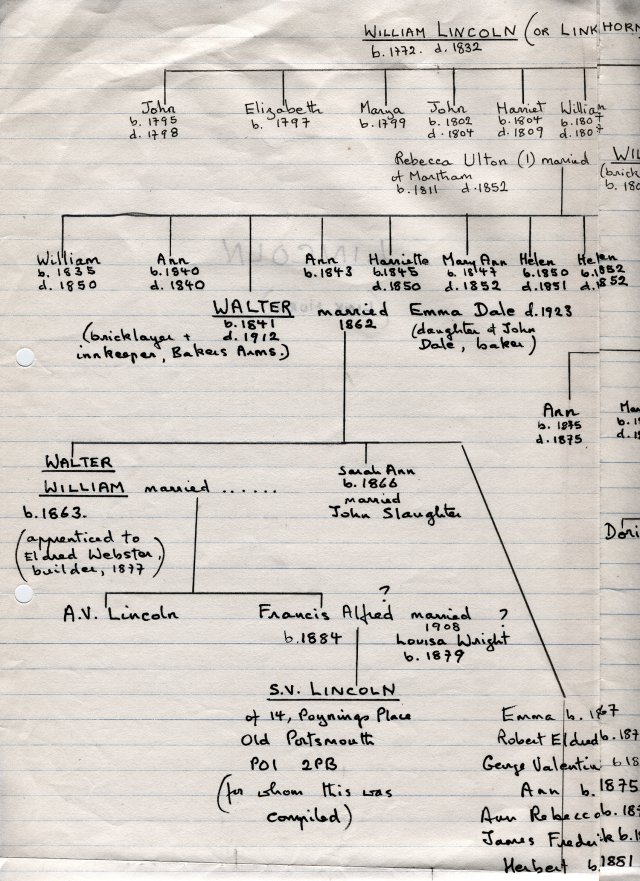 WILLIAM LINCOLN (OR LINKHORN
b. 1772. d. 1832
John Elizabeth Marya John Harriet William
b. 1795 b. 1797 b. 1799 b. 1802 b. 1804 b. 1807
d. 1798 d. 1804 d. 1809 d. 1807
Rebecca Ulton (1) married
of Martham
b. 1811 d. 1852
(brick
b. 180
William Ann Ann Harriette Mary Ann Helen Helen
b. 1835 b. 1840 b. 1843 b. 1845 b. 1847 b. 1850 b. 1852
d. 1850 d. 1840 d. 1850 d. 1852 d. 1851 d. 1852
WALTER married Emma Dale d. 1923
b. 1841 1862 (daughter of John
(bricklayer + d. 1912 Dale, baker)
innkeeper, Bakers Arms.)
Ann Ma
b. 1875 b. 1
d. 1875 d. 1
WALTER
WILLIAM married ......
b. 1863.
(apprenticed to
Eldred Webster,
builder, 1877)
Sarah Ann
b. 1866
married
John Slaughter
Dori
?
A.V. Lincoln Francis Alfred married ?
b. 1884 1908
Louisa Wright
b. 1879
S.V. LINCOLN
of 14, Poynings Place
Old Portsmouth
PO1 2PB
(for whom this was
compiled)
Emma b. 1867
Robert Eldred b. 187
George Valentin b. 18
Ann b. 1875
Ann Rebecca b. 187
James Frederik b. 1
Herbert b. 1881